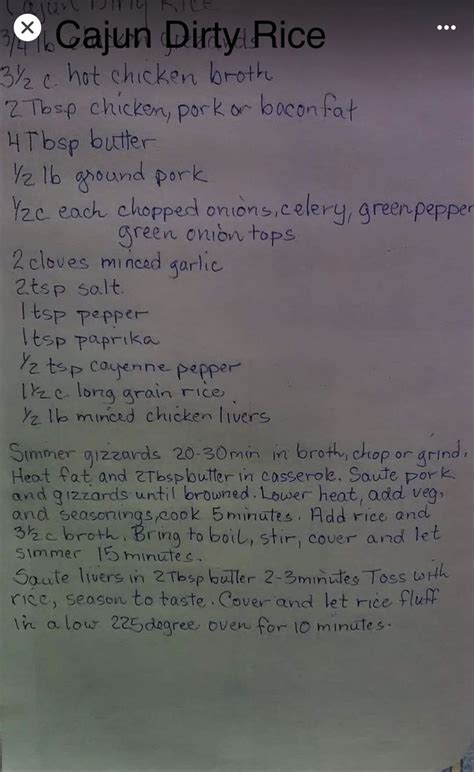 Cajun Dirty Rice
Cajun Dirty Rice
3/4 lb
3½ c. hot chicken broth
2 Tbsp chicken, pork or bacon fat
4 Tbsp butter
½ lb ground pork
½ c each chopped onions, celery, green pepper
green onion tops
2 cloves minced garlic
2 tsp salt.
1 tsp pepper
1 tsp paprika
½ tsp cayenne pepper
1½ c. long grain rice.
½ lb minced chicken livers
Simmer gizzards 20-30 min in broth, chop or grind.
Heat fat and 2 Tbsp butter in casserole. Saute pork
and gizzards until browned. Lower heat, add veg,
and seasonings, cook 5 minutes. Add rice and
3½ c broth. Bring to boil, stir, cover and let
simmer 15 minutes.
Saute livers in 2 Tbsp butter 2-3 minutes Toss with
rice, season to taste. Cover and let rice fluff
in a low 225 degree oven for 10 minutes.